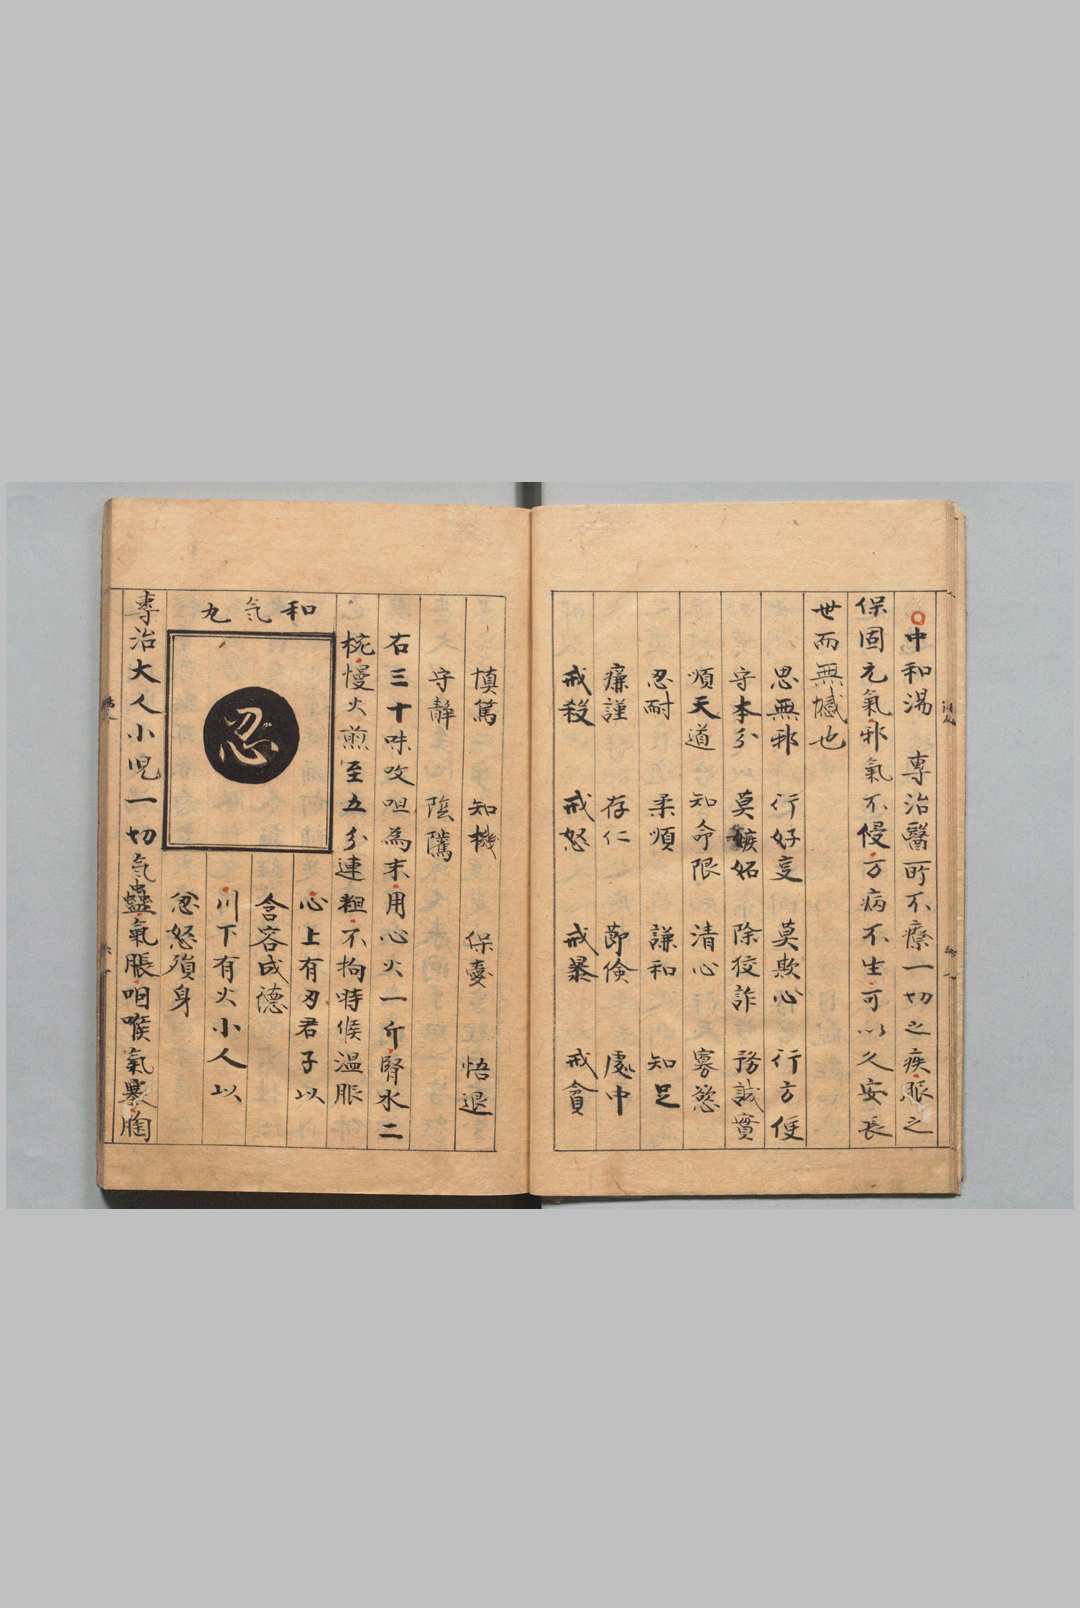 中和湯 專治醫所不療一切之疾服之
保固元氣邪氣不侵万病不生可以久安長
世而無憾也
思無邪 行好事 莫欺心 行方便
守本分 莫嫉妬 除狡詐 務誠實
順天道 知命限 清心 寡慾
忍耐 柔順 謙和 知足
廉謹 存仁 節儉 處中
戒殺 戒怒 戒暴 戒貪
慎篤 知機 保愛 恬退
守靜 陰騭
右三十味㕮咀為末用心火一斤腎水二
椀慢火煎至五分連粗不拘時候温服
和气丸
忍
心上有刃君子以
含容成德
川下有火小人以
忿怒殞身
專治大人小児一切气蠱氣脹咽喉氣塞胸